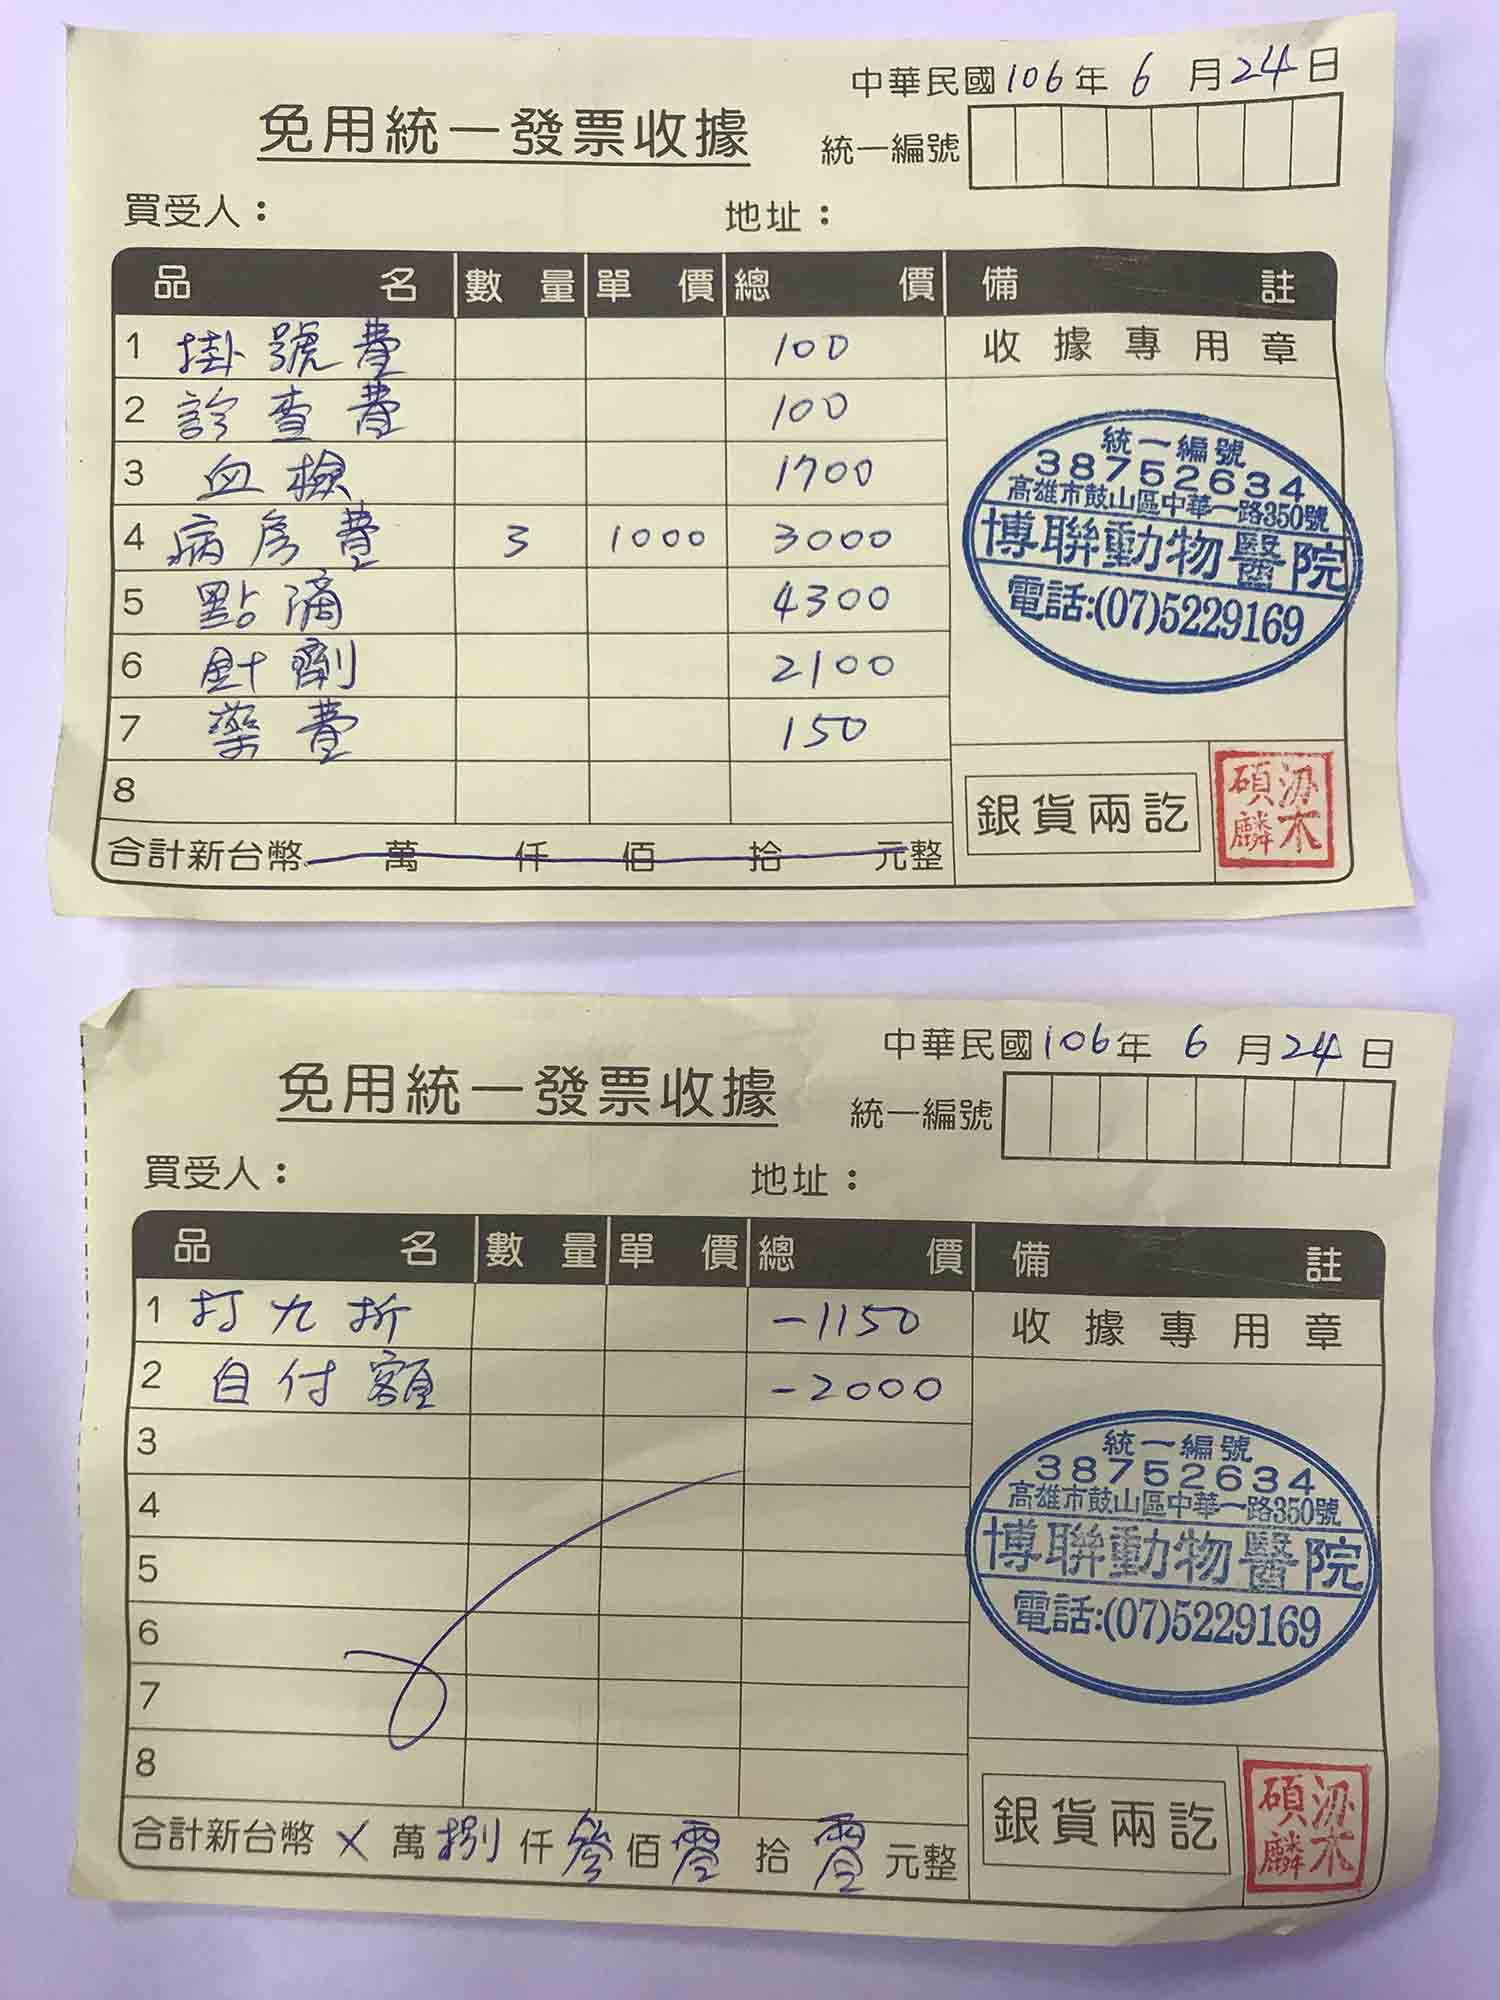 中華民國106年 6 月24日
免用統一發票收據
統一編號
買受人： 地址：
品名 數量 單價 總價 備註
1 掛號費 100 收據專用章
2 診查費 100
3 血檢 1700
4 病房費 3 1000 3000
5 點滴 4300
6 針劑 2100
7 藥費 150
8
合計新台幣 萬 仟 佰 拾 元整
統一編號
38752634
高雄市鼓山區中華一路350號
博聯動物醫院
電話:(07)5229169
銀貨兩訖
梁碩麟
中華民國106年 6 月24日
免用統一發票收據
統一編號
買受人： 地址：
品名 數量 單價 總價 備註
1 打九折 -1150 收據專用章
2 自付額 -2000
3
4
5
6
7
8
合計新台幣 X 萬捌仟參佰零拾零元整
統一編號
38752634
高雄市鼓山區中華一路350號
博聯動物醫院
電話:(07)5229169
銀貨兩訖
梁碩麟